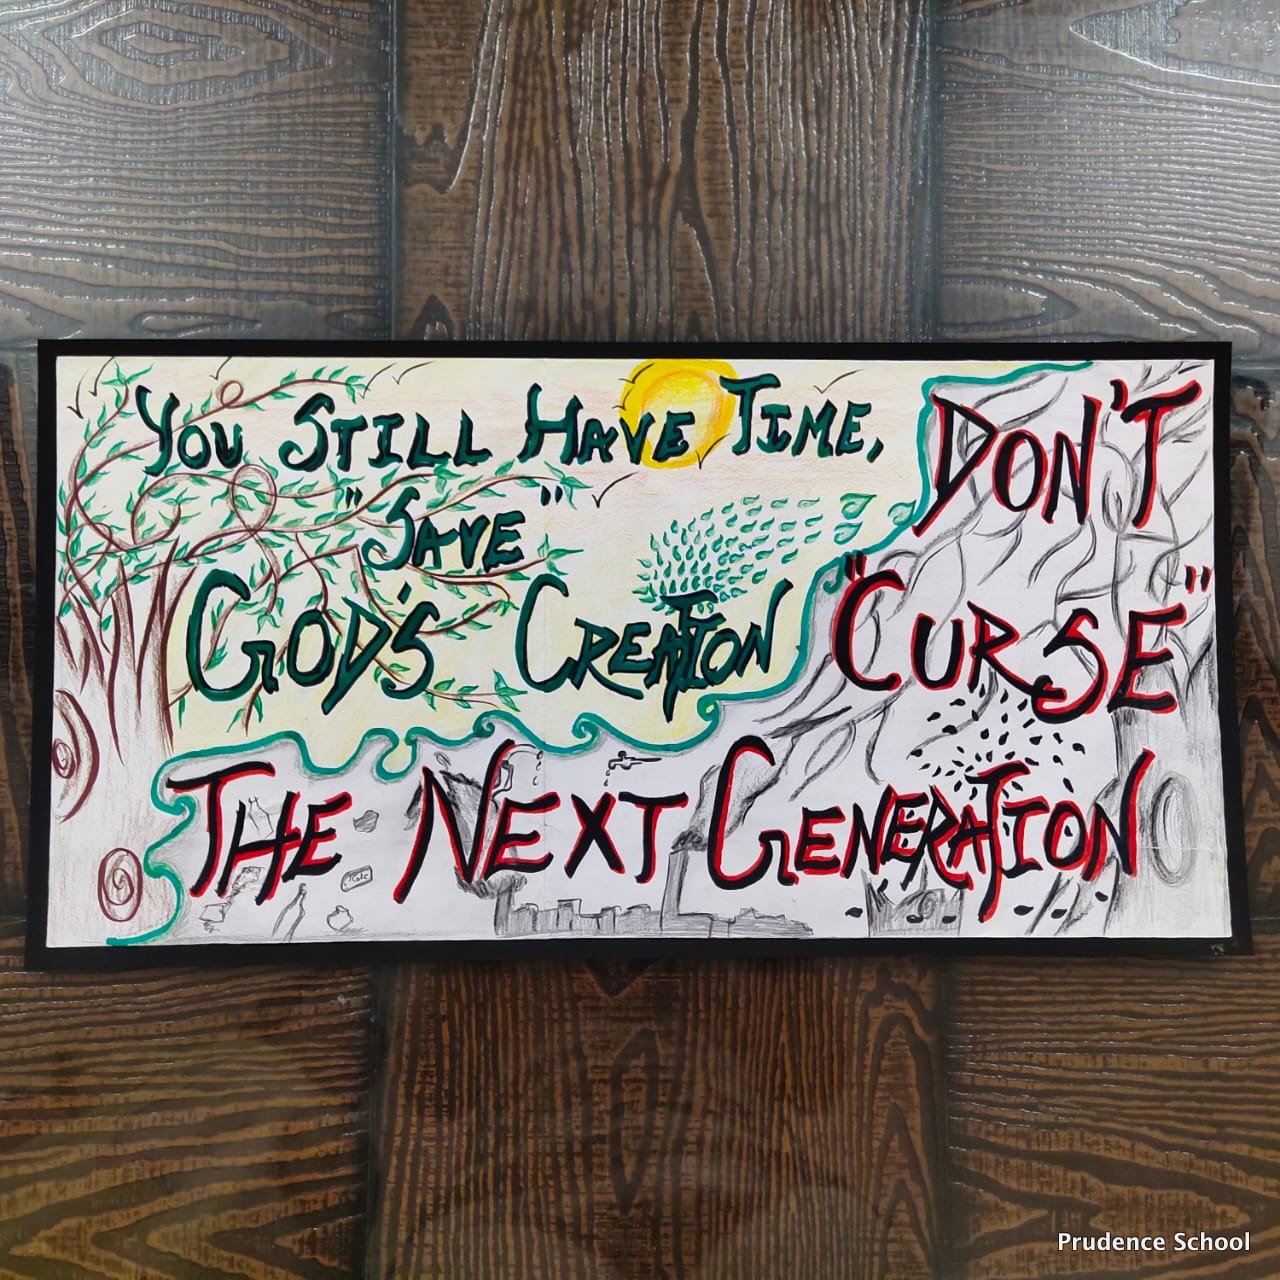 You Still Have Time,
"Save"
God's Creation
Don't
"Curse"
The Next Generation
Prudence School